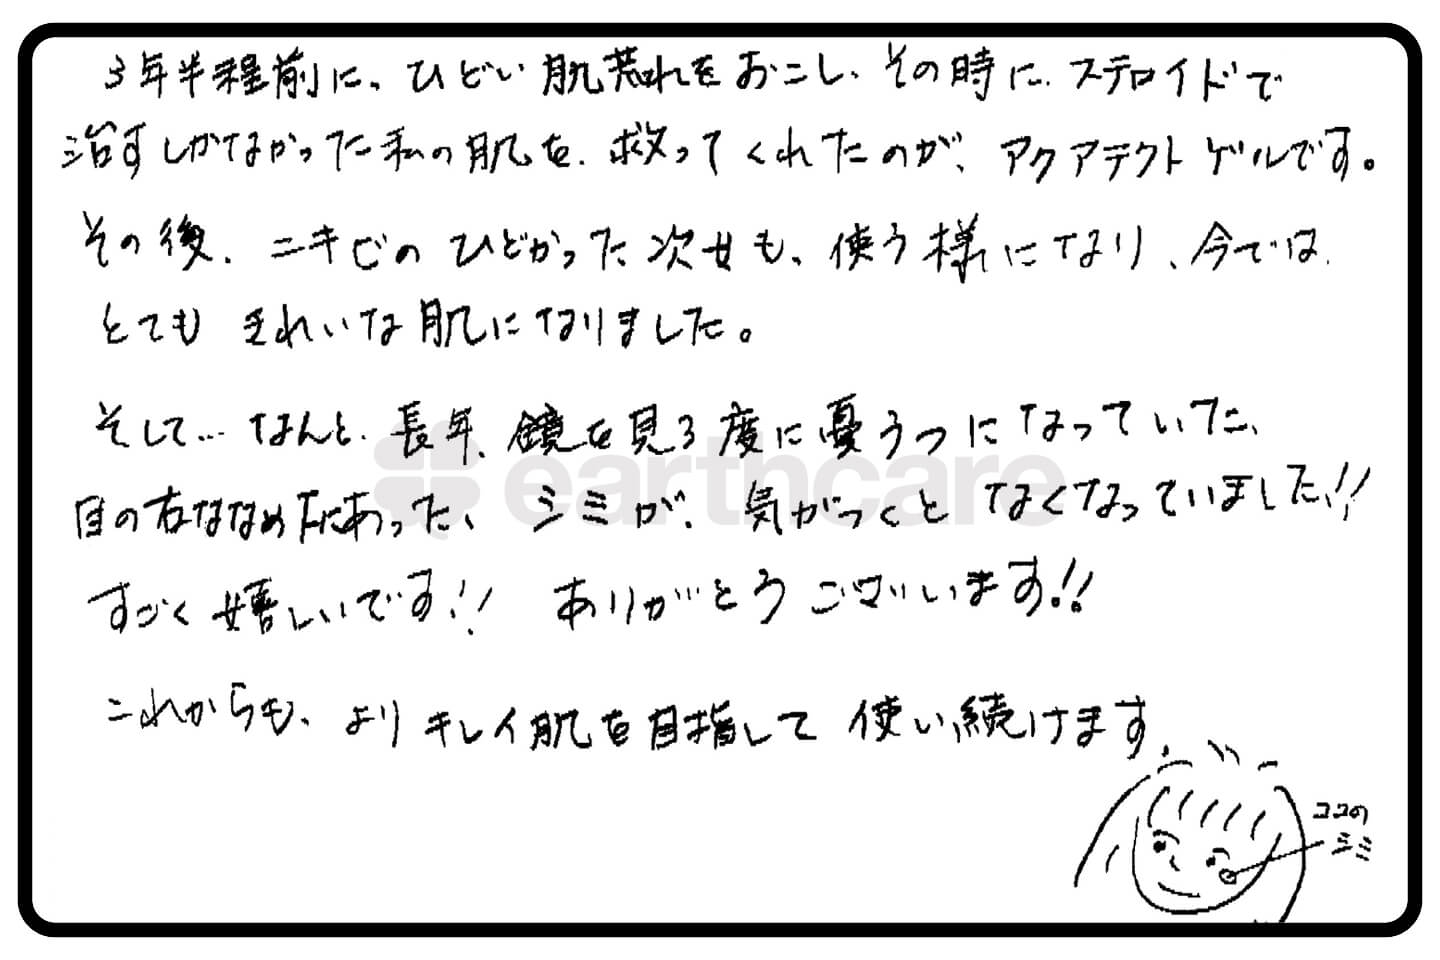 3年半程前に、ひどい肌荒れをおこし、その時に、ステロイドで
治すしかなかった私の肌を、救ってくれたのが、アクアテクトゲルです。
その後、ニキビのひどかった次女も、使う様になり、今では、
とても きれいな肌になりました。
そして… なんと、長年、鏡を見る度に憂うつになっていた、
earthcare
目の右ななめ下にあった、シミが、気がつくと なくなっていました!!
すごく嬉しいです!! ありがとうございます!!
これからも、よりキレイ肌を目指して使い続けます。
ココの
シミ